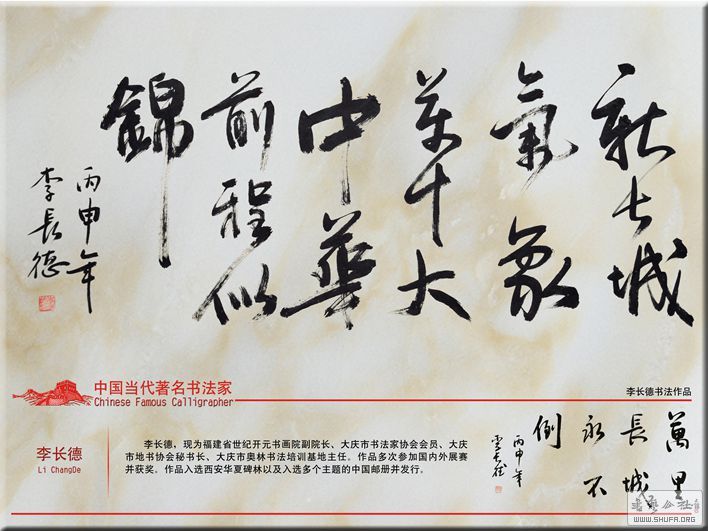 新长城
氣象
万千大
中華
前程似
錦
丙申年
李長德
中国当代著名书法家
Chinese Famous Calligrapher
李长德书法作品
李长德
Li ChangDe
李长德，现为福建省世纪开元书画院副院长、大庆市书法家协会会员、大庆
市地书协会秘书长、大庆市奥林书法培训基地主任。作品多次参加国内外展赛
并获奖。作品入选西安华夏碑林以及入选多个主题的中国邮册并发行。
萬里
長城
永不
倒
丙申年
WWW.SHUFA.ORG